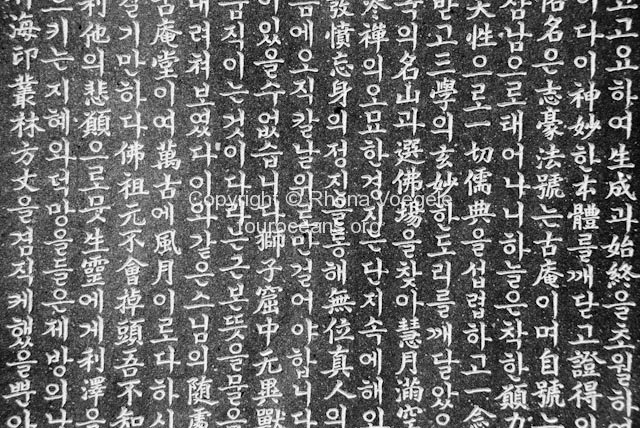 고요하여生成과始終을초월하여
이다이神妙한本體를깨달고證得의
俗名은志豪法號는古庵이며自號는
삼남으로태어나니하늘은착하
天性으로一切儒典을섭렵하고一念
받고三學의玄妙한도리를깨달았으
국의名山과選佛場을찾아慧月滿空
參禪의오묘한경지는단지속에해
發憤忘身의정진을통해無位真人의
음에오직칼날위를만걸어야합니다
이있을수없습니다獅子窟中元異獸
움직이는것이다라는근본뜻을물을
내려쳐보였다이와같은스님의随處
古庵堂이여萬古에風月이로다하시
질기만하다佛祖元不會掉頭吾不知
利他의悲願으로뭇生靈에게利澤을
으키는지혜와덕망을들은제방의나
海印叢林方丈을겸직케했을뿐아
Copyright © Rhona Voegele
fouroceans.org